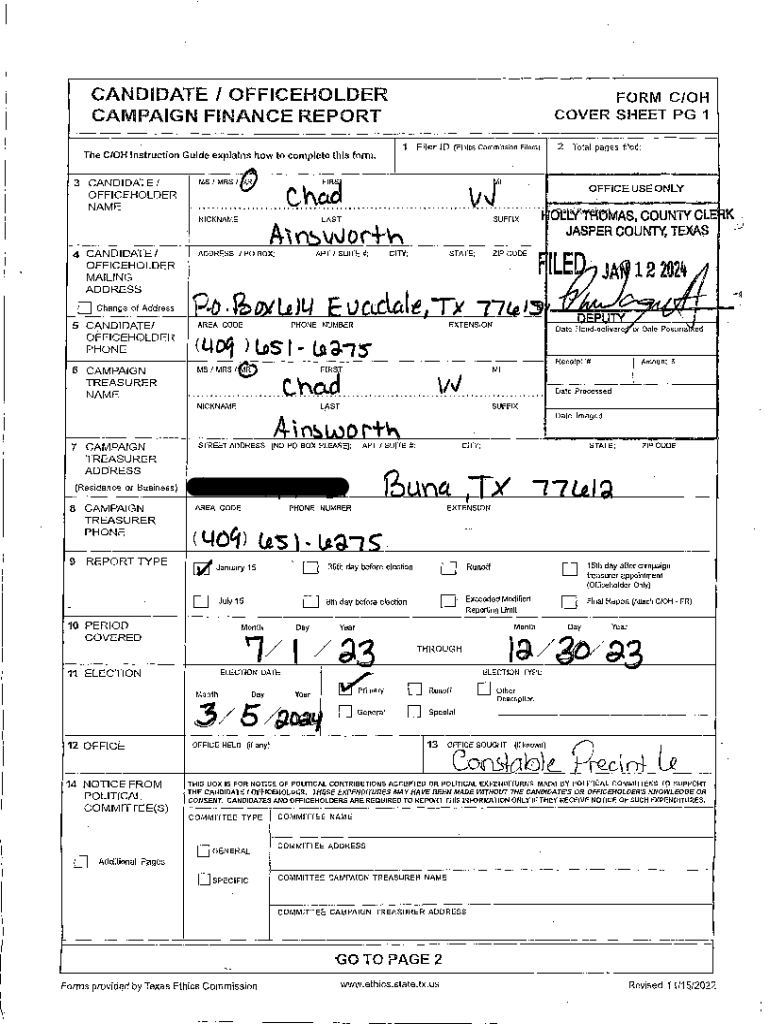 CANDIDATE / OFFICEHOLDER
CAMPAIGN FINANCE REPORT
FORM C/OH
COVER SHEET PG 1
The C/OH Instruction Guide explains how to complete this form.
1 Filer ID (Ethics Commission Filers)
2 Total pages filed:
3 CANDIDATE / OFFICEHOLDER NAME
MS / MRS / MR FIRST MI
Chad W
NICKNAME LAST SUFFIX
Ainsworth
OFFICE USE ONLY
HOLLY THOMAS, COUNTY CLERK
JASPER COUNTY, TEXAS
FILED JAN 12 2024
DEPUTY
Date Hand-delivered or Date Postmarked
Receipt # Amount $
Date Processed
Date Imaged
4 CANDIDATE / OFFICEHOLDER MAILING ADDRESS
Change of Address
ADDRESS / PO BOX; APT / SUITE #; CITY; STATE; ZIP CODE
P.O. Box 614 Evadale, Tx 77615
5 CANDIDATE/ OFFICEHOLDER PHONE
AREA CODE PHONE NUMBER EXTENSION
(409) 651-6275
6 CAMPAIGN TREASURER NAME
MS / MRS / MR FIRST MI
Chad W
NICKNAME LAST SUFFIX
Ainsworth
7 CAMPAIGN TREASURER ADDRESS
(Residence or Business)
STREET ADDRESS (NO PO BOX PLEASE); APT / SUITE #; CITY; STATE; ZIP CODE
Buna, TX 77612
8 CAMPAIGN TREASURER PHONE
AREA CODE PHONE NUMBER EXTENSION
(409) 651-6275
9 REPORT TYPE
January 15 30th day before election Runoff 15th day after campaign treasurer appointment (Officeholder Only)
July 15 8th day before election Exceeded Modified Reporting Limit Final Report (Attach C/OH - FR)
10 PERIOD COVERED
Month Day Year Month Day Year
7/1/23 THROUGH 12/30/23
11 ELECTION
ELECTION DATE ELECTION TYPE
Month Day Year
3/5/2024
Primary Runoff Other Description
General Special
12 OFFICE
OFFICE HELD (if any)
13 OFFICE SOUGHT (if known)
Constable Precint 6
14 NOTICE FROM POLITICAL COMMITTEE(S)
THIS BOX IS FOR NOTICE OF POLITICAL CONTRIBUTIONS ACCEPTED OR POLITICAL EXPENDITURES MADE BY POLITICAL COMMITTEES TO SUPPORT
THE CANDIDATE / OFFICEHOLDER. THESE EXPENDITURES MAY HAVE BEEN MADE WITHOUT THE CANDIDATE'S OR OFFICEHOLDER'S KNOWLEDGE OR
CONSENT. CANDIDATES AND OFFICEHOLDERS ARE REQUIRED TO REPORT THIS INFORMATION ONLY IF THEY RECEIVE NOTICE OF SUCH EXPENDITURES.
COMMITTEE TYPE COMMITTEE NAME
GENERAL
COMMITTEE ADDRESS
Additional Pages
SPECIFIC
COMMITTEE CAMPAIGN TREASURER NAME
COMMITTEE CAMPAIGN TREASURER ADDRESS
GO TO PAGE 2
Forms provided by Texas Ethics Commission www.ethics.state.tx.us Revised 11/15/2022